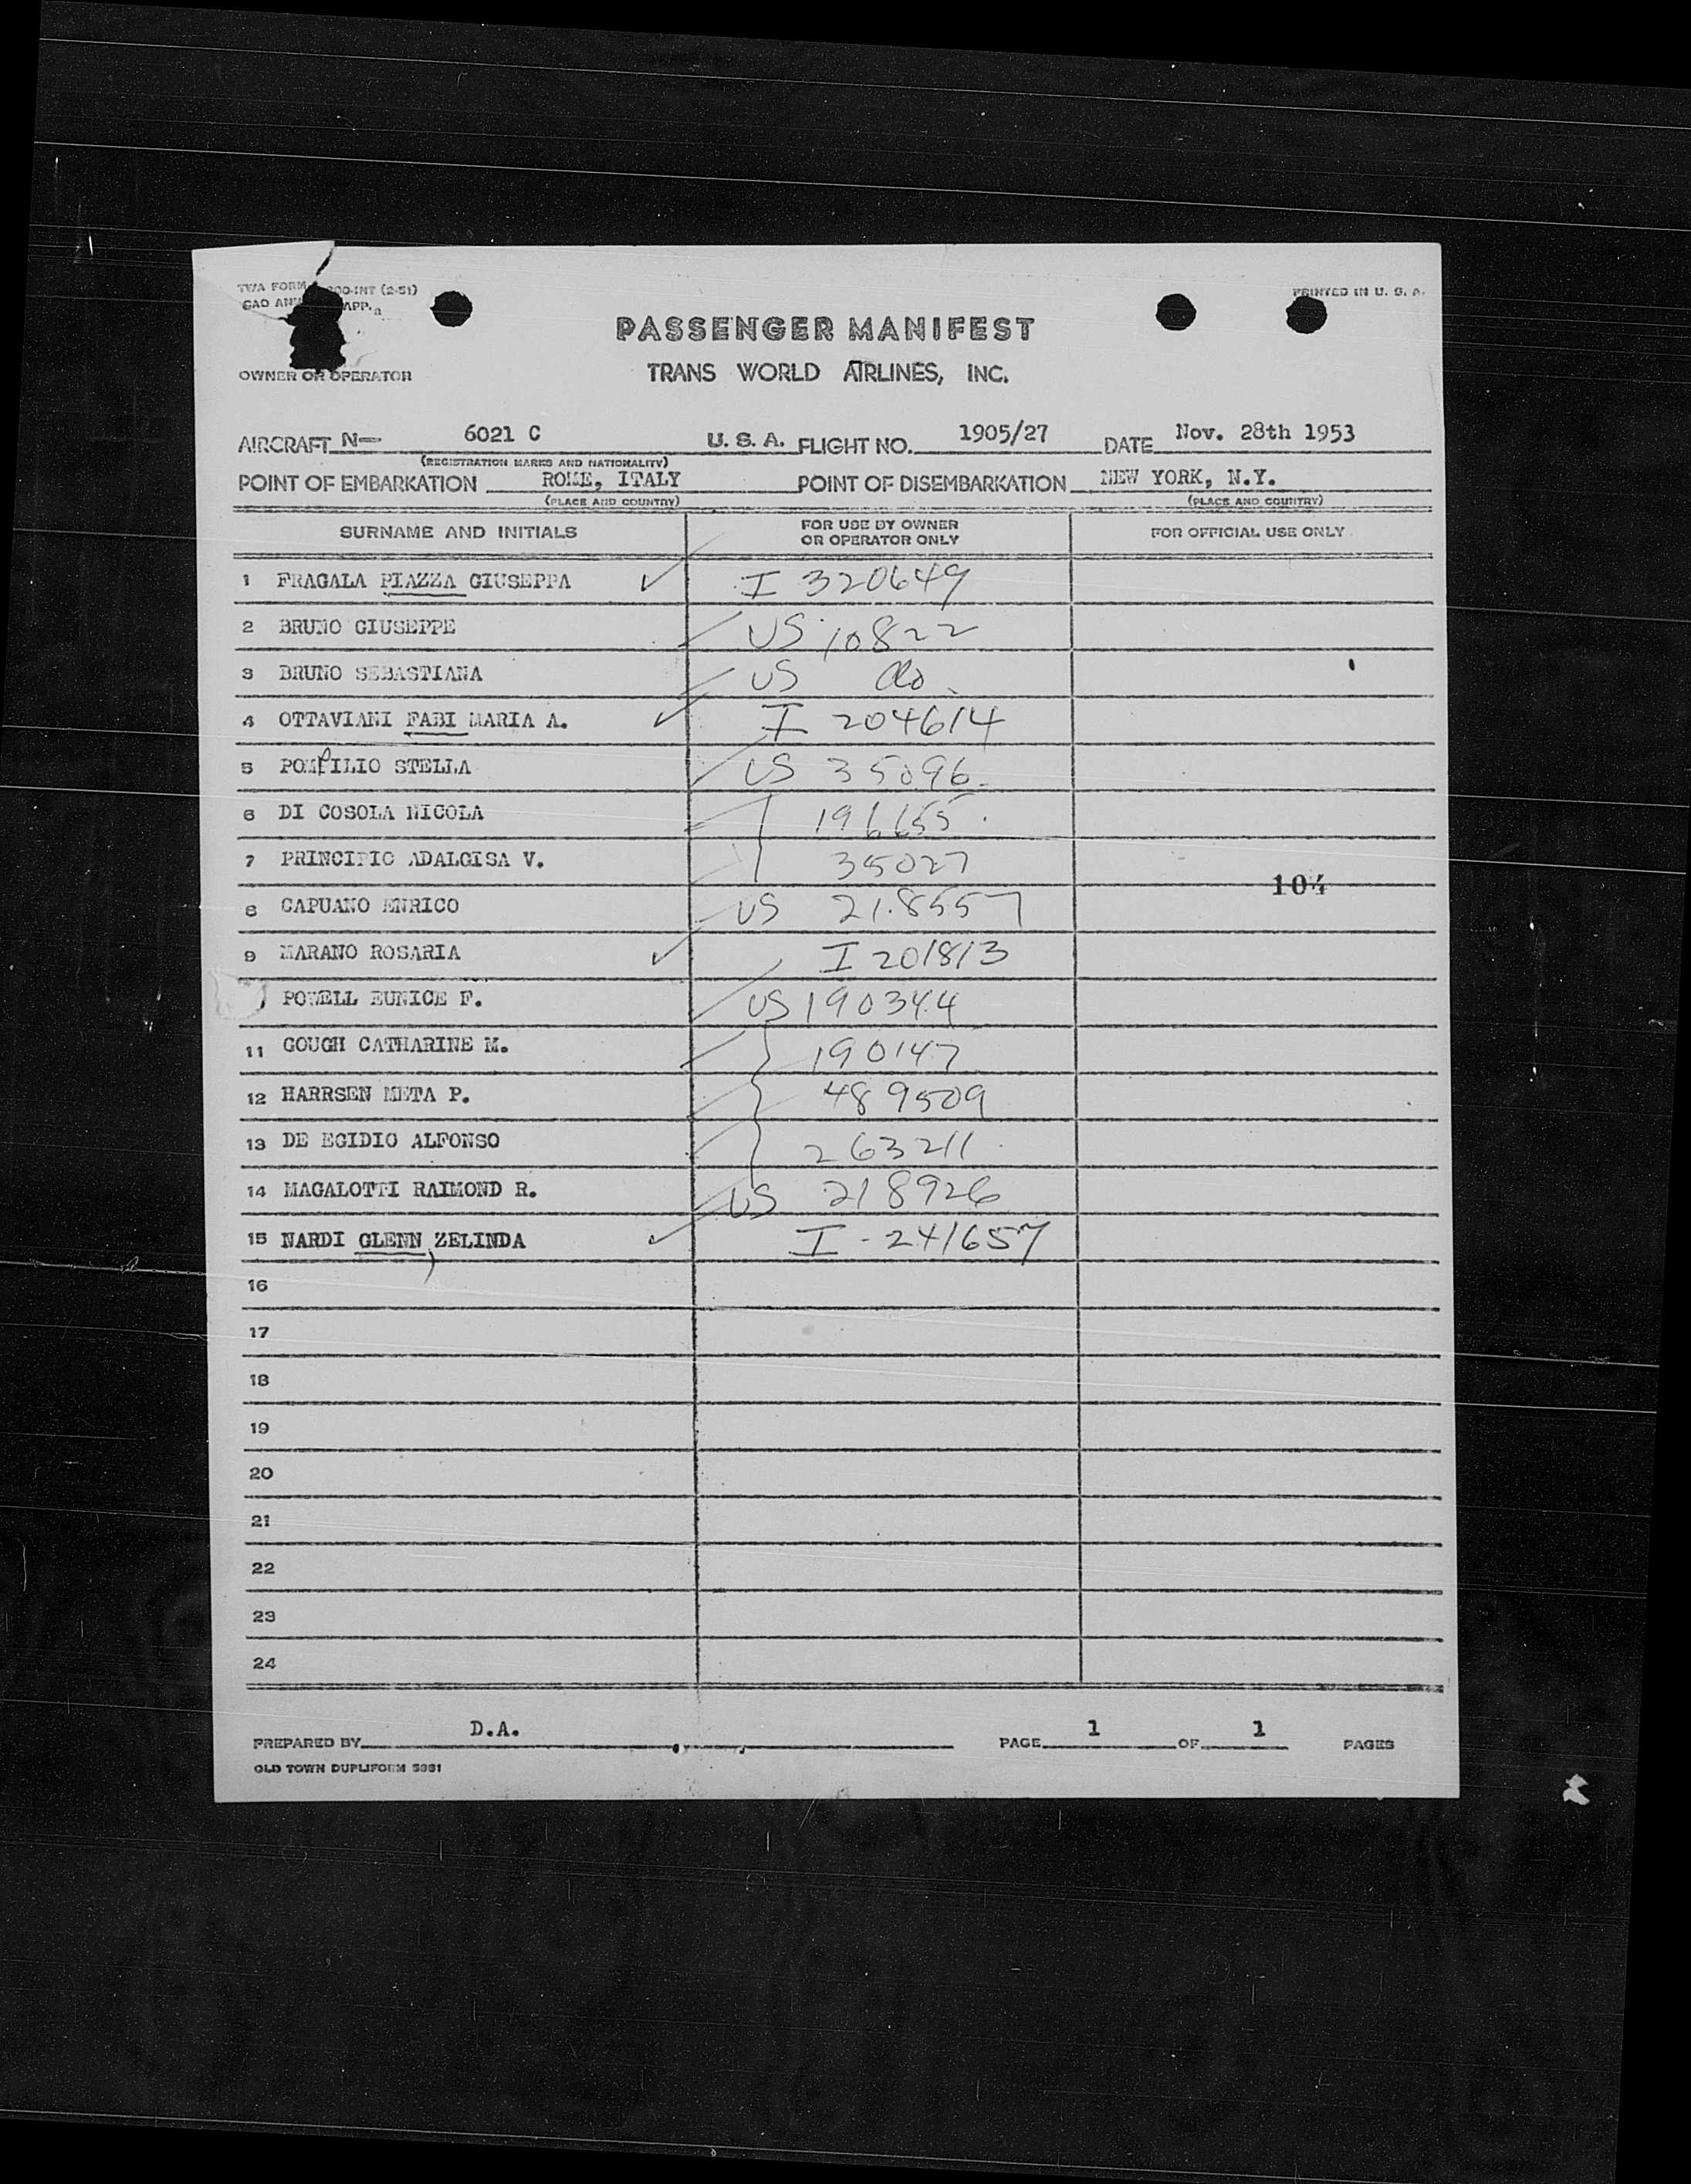 TWA FORM 300-INT (2-51)
PRINTED IN U. S. A.
CAO APP.
PASSENGER MANIFEST
OWNER OR OPERATOR
TRANS WORLD AIRLINES, INC.
AIRCRAFT N- 6021 C U. S. A. FLIGHT NO. 1905/27 DATE Nov. 28th 1953
(REGISTRATION MARKS AND NATIONALITY)
POINT OF EMBARKATION ROME, ITALY POINT OF DISEMBARKATION NEW YORK, N.Y.
(PLACE AND COUNTRY) (PLACE AND COUNTRY)
SURNAME AND INITIALS FOR USE BY OWNER OR OPERATOR ONLY FOR OFFICIAL USE ONLY
1 FRAGALA PIAZZA GIUSEPPA I 320649
2 BRUNO GIUSEPPE US 10822
3 BRUNO SEBASTIANA US do
4 OTTAVIANI FABI MARIA A. I 204614
5 POMPILIO STELLA US 35096
6 DI COSOLA NICOLA 196655
7 PRINCIPIO ADALGISA V. 35027
104
8 CAPUANO ENRICO US 218557
9 MARANO ROSARIA I 201813
POWELL EUNICE F. US 190344
11 GOUGH CATHARINE M. 190147
12 HARRSEN META P. 489509
13 DE EGIDIO ALFONSO 263211
14 MAGALOTTI RAIMOND R. US 218926
15 NARDI GLENN, ZELINDA I - 241657
16
17
18
19
20
21
22
23
24
PREPARED BY D.A. PAGE 1 OF 1 PAGES
OLD TOWN DUPLIFORM 5381